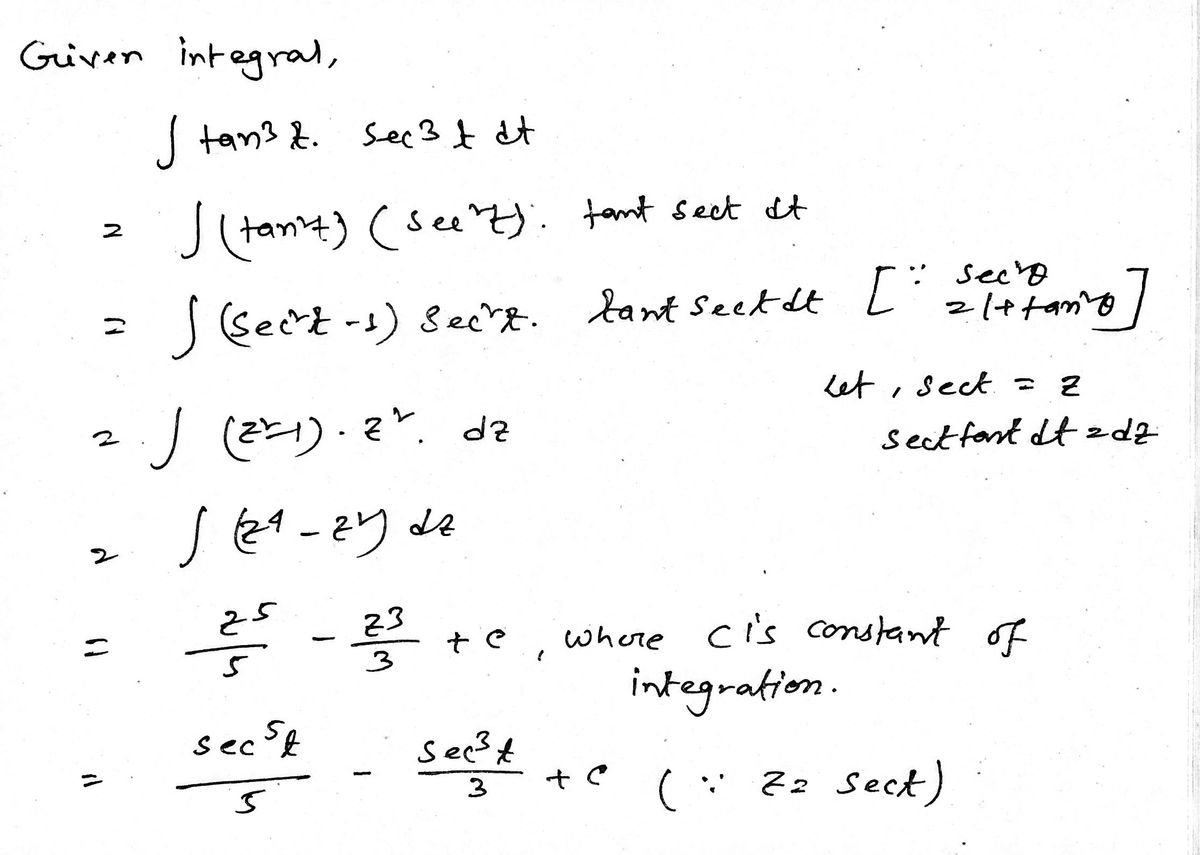 Given integral,
∫ tan³ t. sec³ t dt
= ∫ (tan²t) (sec²t). tant sect dt
= ∫ (sec²t - 1) sec²t. tant sect dt [∵ sec²θ
= 1 + tan²θ]
Let, sect = z
sect tant dt = dz
= ∫ (z²-1) . z². dz
= ∫ (z⁴ - z²) dz
= z⁵/5 - z³/3 + c, where c is constant of
integration.
= sec⁵t/5 - sec³t/3 + c (∵ z = sect)